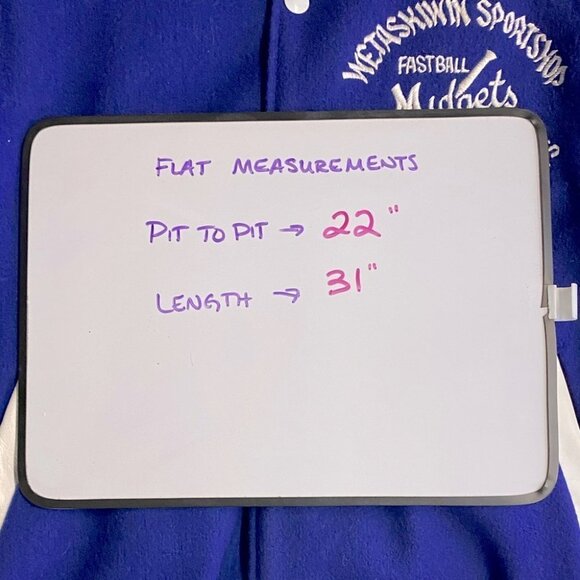 WETASKIWIN SPORTSHOP
FASTBALL
Midgets
FLAT MEASUREMENTS
PIT TO PIT → 22"
LENGTH → 31"